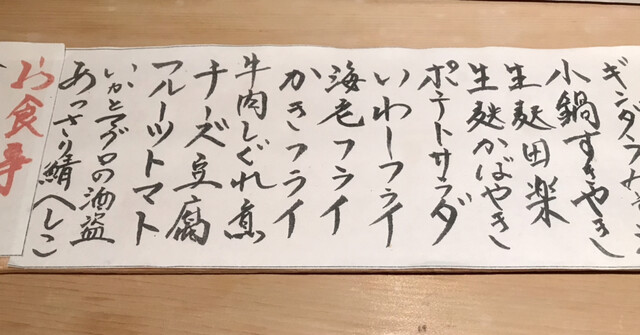 小鍋すきやき
生麩田楽
生麩かばやき
ポテトサラダ
いわしフライ
海老フライ
かきフライ
牛肉しぐれ煮
チーズ豆腐
フルーツトマト
いかとマグロの酒盗
あっさり鯖へしこ
お食事